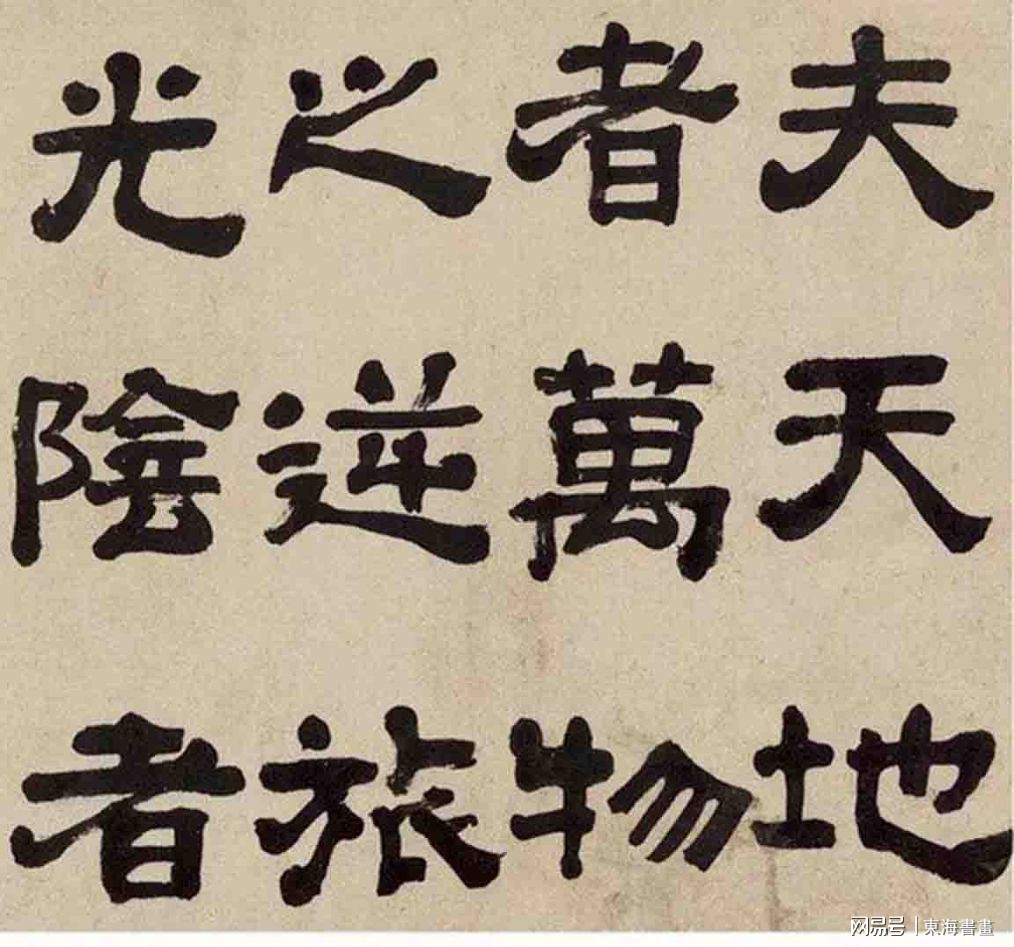 夫天地
者萬物
之逆旅
光陰者
网易号 | 東海書畫